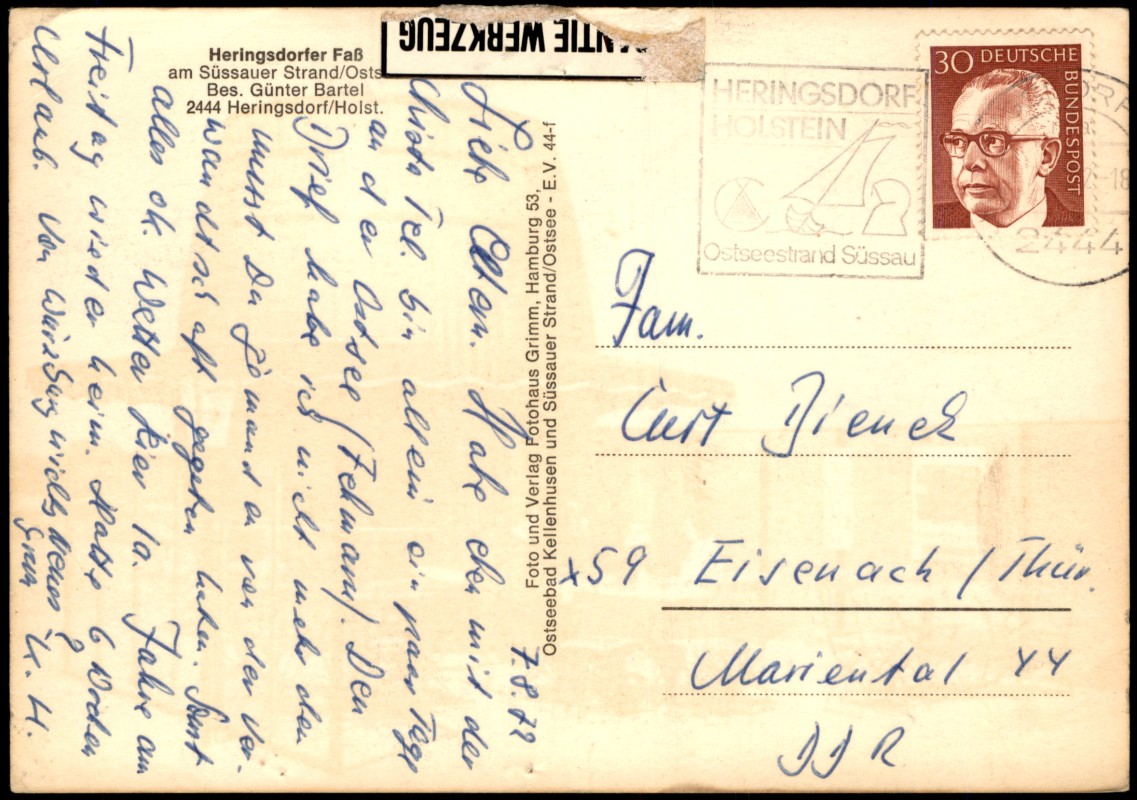 Heringsdorfer Faß
am Süssauer Strand/Osts
Bes. Günter Bartel
2444 Heringsdorf/Holst.
ANTIE WERKZEUG
7.8.72
Liebe Eltern. Habe eben mit der
Christa Tel. bin allein ein paar Tage
an der Ostsee (Fehmarn). Den
Brief habe ich nicht mehr den
musst Du jemand en von der Ver-
wandtschaft gegeben haben. Sonst
alles ok. Wetter hier 1a. Fahre am
Freitag wieder heim. Hatte 6 Wochen
Urlaub. Von Würzburg nichts Neues?
Foto und Verlag Fotohaus Grimm, Hamburg 53,
Ostseebad Kellenhusen und Süssauer Strand/Ostsee - E.V. 44-f
HERINGSDORF
HOLSTEIN
Ostseestrand Süssau
30 DEUTSCHE
BUNDESPOST
2444
Fam.
Curt Bienek
x59 Eisenach / Thür.
Mariental 44
DDR